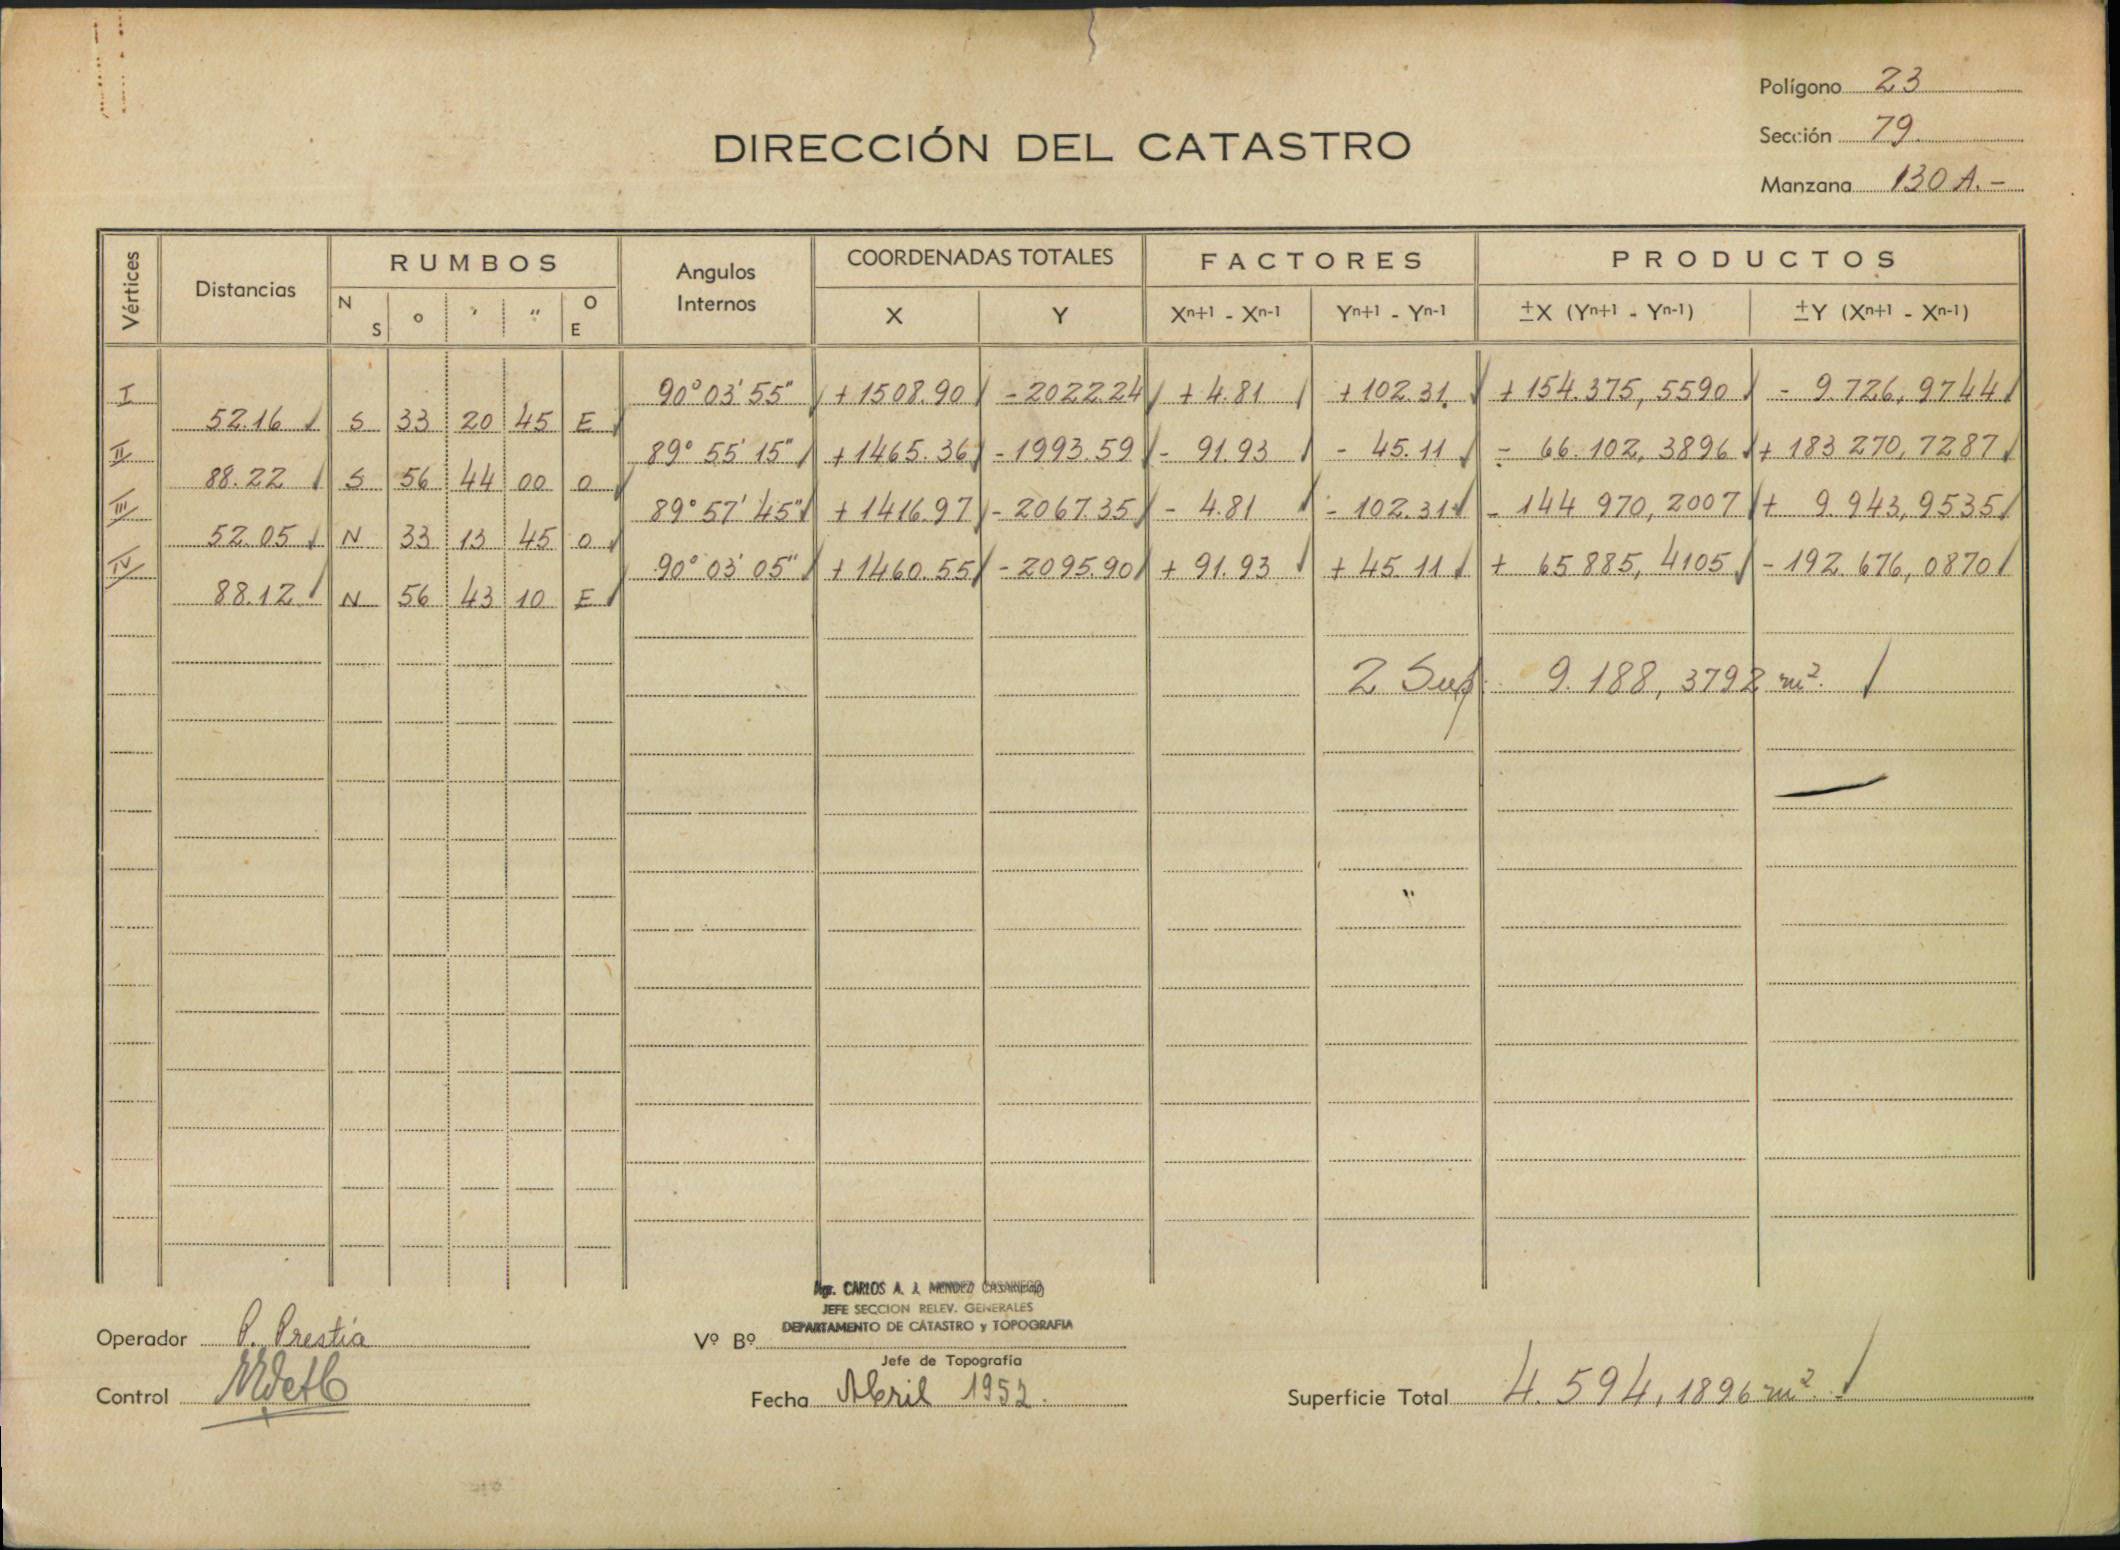 Polígono 23
Sección 79.
Manzana 130 A. -
DIRECCIÓN DEL CATASTRO
Vértices Distancias RUMBOS Angulos Internos COORDENADAS TOTALES FACTORES PRODUCTOS
N S o ' " O E X Y Xn+1 - Xn-1 Yn+1 - Yn-1 ±X (Yn+1 - Yn-1) ±Y (Xn+1 - Xn-1)
I 90° 03' 55" + 1508.90 - 2022.24 + 4.81 + 102.31 + 154.375, 5590 - 9.726, 9744
52.16 S 33 20 45 E
II 89° 55' 15" + 1465.36 - 1993.59 - 91.93 - 45.11 - 66.102, 3896 + 183 270, 7287
88.22 S 56 44 00 O
III 89° 57' 45" + 1416.97 - 2067.35 - 4.81 - 102.31 - 144 970, 2007 + 9.943, 9535
52.05 N 33 13 45 O
IV 90° 03' 05" + 1460.55 - 2095.90 + 91.93 + 45.11 + 65.885, 4105 - 192.676, 0870
88.12 N 56 43 10 E
2 Sup. 9.188, 3792 m².
Agr. CARLOS A. J. MENDEZ CASARIEGO
JEFE SECCION RELEV. GENERALES
DEPARTAMENTO DE CATASTRO y TOPOGRAFIA
Operador P. Prestía
Vº Bº
Jefe de Topografía
Control
Fecha Abril 1952.
Superficie Total 4.594, 1896 m². -